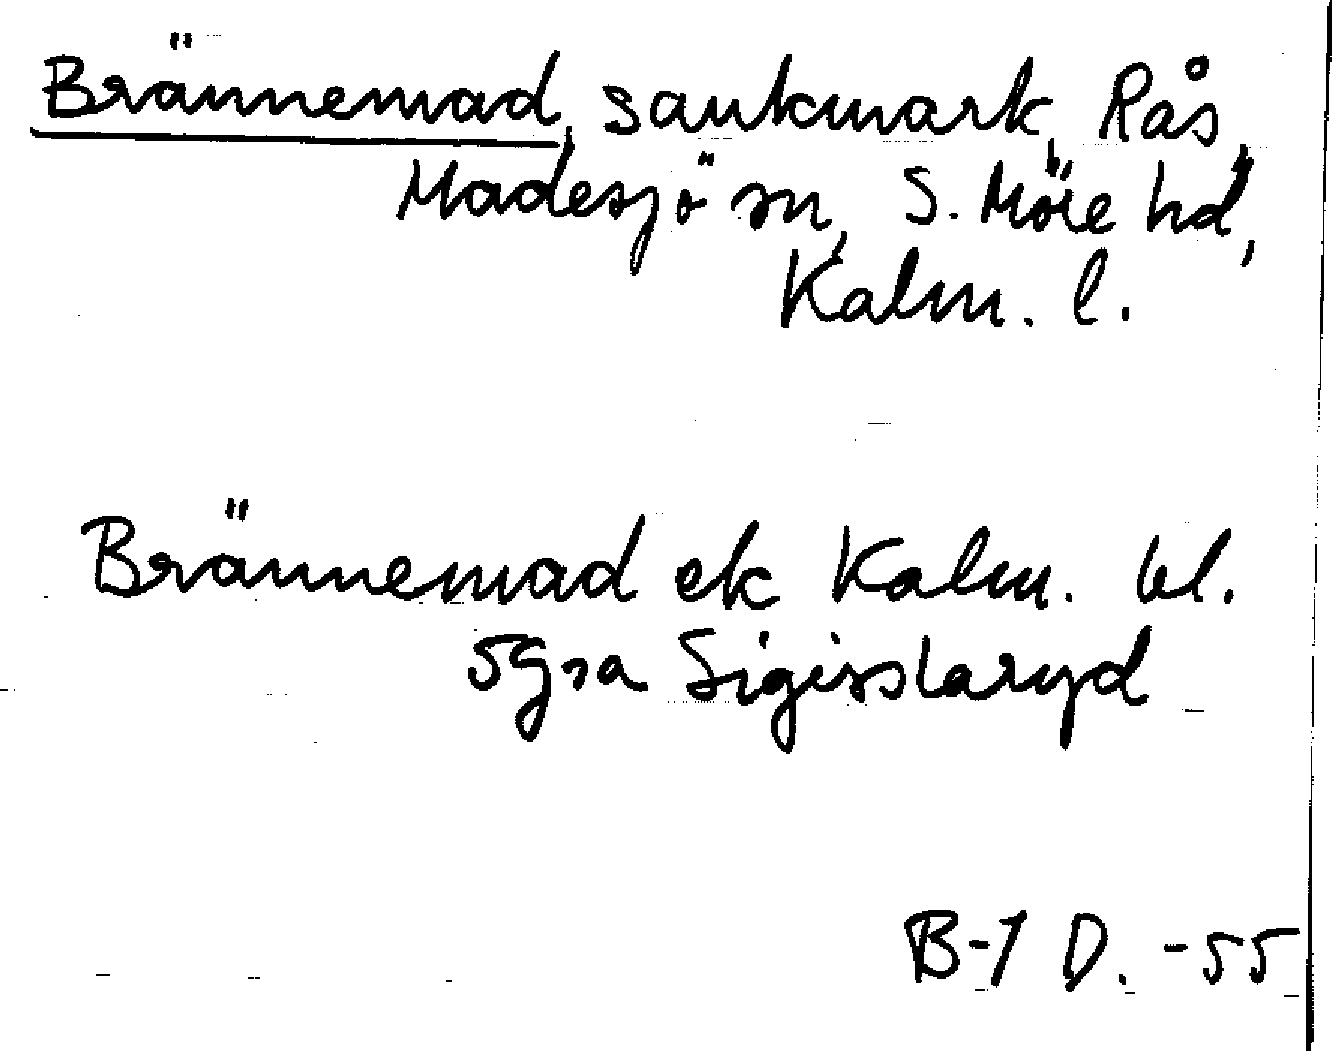 Brännemad, sankmark, Rås,
Madesjö sn, S. Möre hd,
Kalm. l.
Brännemad ek Kalm. bl.
5g7a Sigisslaryd
B-1 D. -55